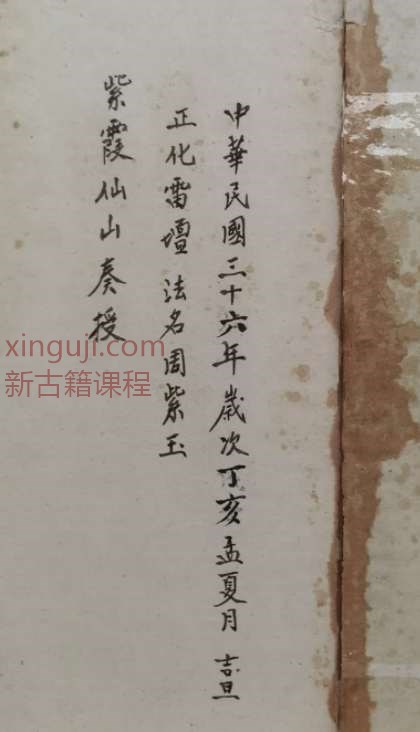 中華民國三十六年歲次丁亥孟夏月 吉旦
正化雷壇 法名周紫玉
紫霞仙山奏授
xinguji.com
新古籍课程